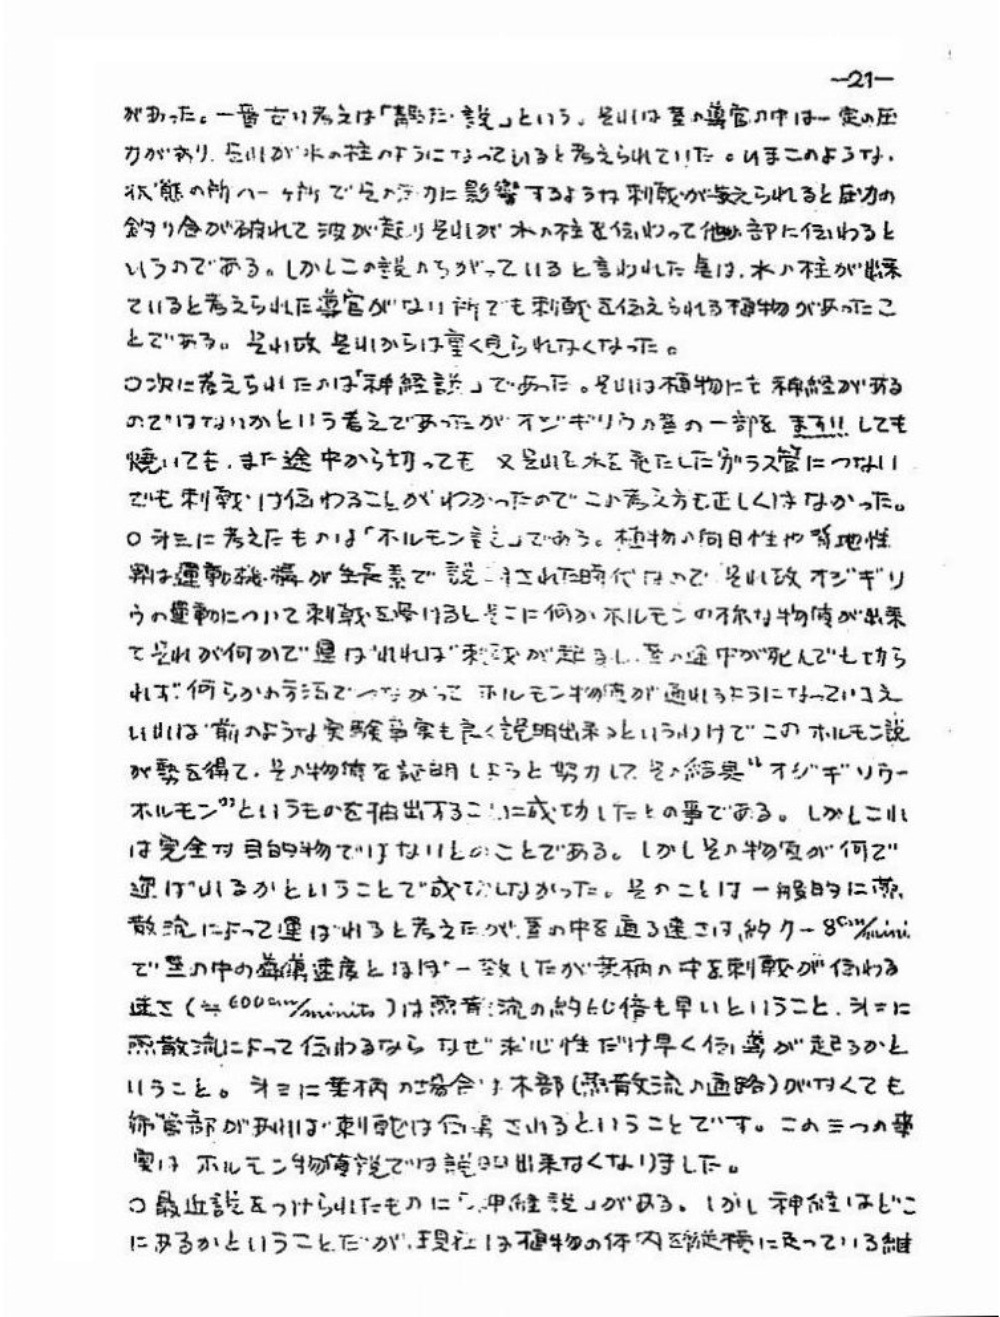 —21—
があった。一番古い考えは「 説」という。それは茎の導管の中は一定の圧
力があり、それが水の柱のようになっていると考えられていた。いまこのような、
状態の所へ一ヶ所でその圧力に影響するような刺戟が与えられると圧力の
釣り合が破れて波が起りそれが水の柱を伝わって他の部に伝わると
いうのである。しかしこの説のちがっていると言われた点は、水の柱が出来
ていると考えられた導管がない所でも刺戟を伝えられる植物があったこ
とである。それ故それからは重く見られなくなった。
○次に考えられたのは「神経説」であった。それは植物にも神経がある
のではないかという考えであったがオジギソウの茎の一部を しても
焼いても、また途中から切っても 又それを水を充たしたガラス管につない
でも刺戟は伝わることがわかったのでこの考え方も正しくはなかった。
○ に考えたものは「ホルモン説」である。植物の向日性や背地性
の運動機構が生長素で説 された時代なので それ故オジギソ
ウの運動について刺戟を受けるとそこに何かホルモンの様な物質が出来
てそれが何かで運ばれれば刺戟が起 し、茎の途中が死んでも切ら
れず、何らかの方法でつながって ホルモン物質が通れるようになっていさえ
いれば前のような実験事実も良く説明出来るというわけでこのホルモン説
が勢を得て、その物質を証明しようと努力して その結果“オジギソウー
ホルモン”というものを抽出することに成功したとの事である。しかしこれ
は完全な目的物ではないとのことである。しかしその物質が何で
運ばれるかということで成功しなかった。そのことは一般的に蒸
散流によって運ばれると考えたが、茎の中を通る速さは、約7〜8cm/mini.
で茎の中の 速度とほぼ一致したが葉柄の中を刺戟が伝わる
速さ(≒600cm/minits)は蒸散流の約 倍も早いということ、 に
蒸散流によって伝わるなら なぜ求心性だけ早く伝導が起るかと
いうこと。 に葉柄の場合は木部(蒸散流の通路)がなくても
篩管部があれば刺戟は伝導されるということです。この三つの事
実は ホルモン物質説では説明出来なくなりました。
○最近説をつけられたものに「 神経説」がある。しかし神経はどこ
にあるかということだが、現在は植物の体内を縦横に走っている維